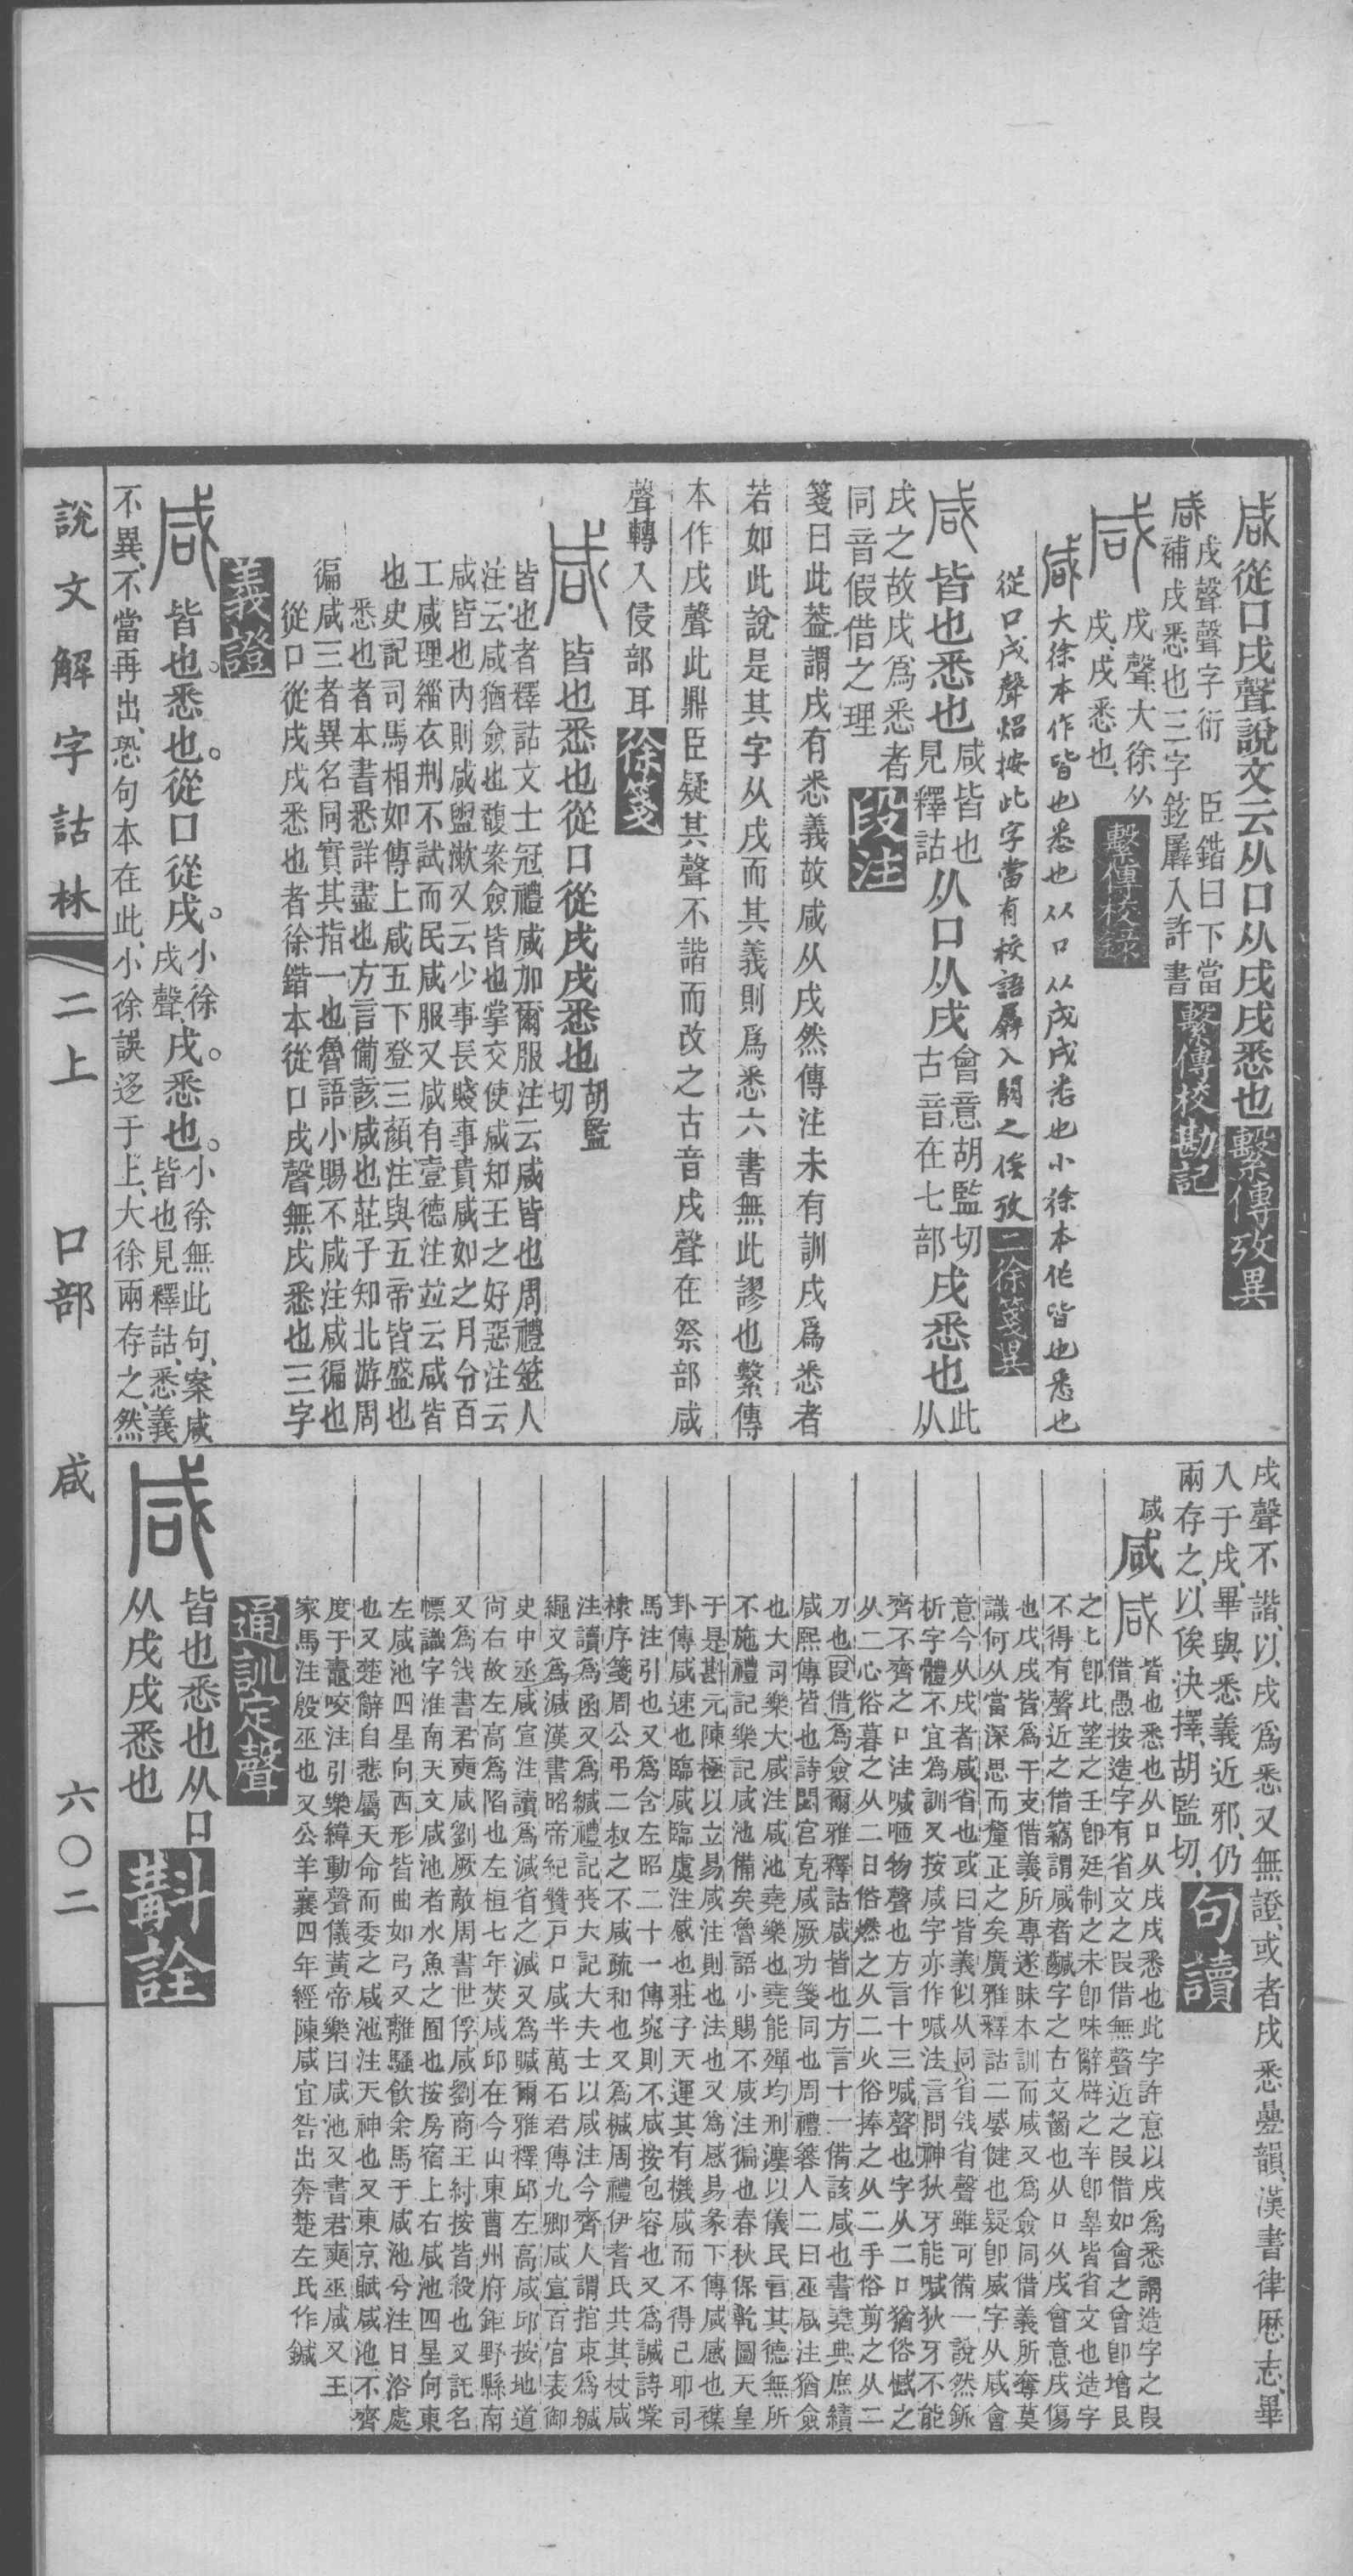 咸從口戌聲說文云从口从戌戌悉也繫傳攷異
咸戌聲聲字衍 臣鍇曰下當
補戌悉也三字鉉羼入許書繫傳校勘記
咸戌聲、大徐从
戌、戌悉也、繫傳校錄
咸大徐本作皆也悉也从口从戌戌悉也小徐本作皆也悉也
從口戌聲炤按此字當有校語羼入闕之俟攷二徐箋異
咸皆也悉也咸皆也
見釋詁从口从戌會意胡監切
古音在七部戌悉也此
从
戌之故戌爲悉者
同音假借之理段注
箋曰此葢謂戌有悉義故咸从戌然傳注未有訓戌爲悉者
若如此說是其字从戌而其義則爲悉六書無此謬也繫傳
本作戌聲此鼎臣疑其聲不諧而改之古音戌聲在祭部咸
聲轉入侵部耳徐箋
咸皆也悉也從口從戌戌悉也胡監
切
皆也者釋詁文士冠禮咸加爾服注云咸皆也周禮簭人
注云咸猶僉也馥案僉皆也掌交使咸知王之好惡注云
咸皆也內則咸盥漱又云少事長賤事貴咸如之月令百
工咸理緇衣刑不試而民咸服又咸有壹德注竝云咸皆
也史記司馬相如傳上咸五下登三顏注與五帝皆盛也
悉也者本書悉詳盡也方言備該咸也莊子知北游周
徧咸三者異名同實其指一也魯語小賜不咸注咸徧也
從口從戌戌悉也者徐鍇本從口戌聲無戌悉也三字
義證
咸皆也。悉也。從口從戌。小徐
戌聲、戌。悉也。小徐無此句、案咸
皆也見釋詁、悉義
不異、不當再出、恐句本在此、小徐誤迻于上、大徐兩存之、然
戌聲不諧、以戌爲悉又無證、或者戌悉曡韻、漢書律厤志、畢
入于戌、畢與悉義近邪、仍
兩存之、以俟決擇、胡監切、句讀
咸咸咸皆也悉也从口从戌戌悉也此字許意以戌爲悉謂造字之叚
借愚按造字有省文之叚借無聲近之叚借如會之曾卽增艮
之匕卽比望之𡈼卽廷制之未卽味辭辟之辛卽辠皆省文也造字
不得有聲近之借竊謂咸者鹹字之古文齧也从口从戌會意戌傷
也戊戌皆爲干支借義所專遂昧本訓而咸又爲僉同借義所奪莫
識何从當深思而釐正之矣廣雅釋詁二㛪健也疑卽威字从咸會
意今从戌者咸省也或曰皆義似从同省戋省聲雖可備一說然鉩
析字體不宜爲訓又按咸字亦作喊法言問神狄牙能喊狄牙不能
齊不齊之口注喊咂物聲也方言十三喊聲也字从二口猶俗憾之
从二心俗暮之从二日俗燃之从二火俗捧之从二手俗剪之从二
刀也叚借爲僉爾雅釋詁咸皆也方言十一備該咸也書堯典庶績
咸熙傳皆也詩閟宮克咸厥功箋同也周禮簭人二曰巫咸注猶僉
也大司樂大咸注咸池堯樂也堯能殫均刑灋以儀民言其德無所
不施禮記樂記咸池備矣魯語小賜不咸注徧也春秋保乾圖天皇
于是斟元陳極以立易咸注則也法也又爲感易彖下傳咸感也襍
卦傳咸速也臨咸臨虞注感也莊子天運其有機咸而不得已耶司
馬注引也又爲含左昭二十一傳窕則不咸按包容也又爲諴詩棠
棣序箋周公弔二叔之不咸疏和也又爲椷周禮伊耆氏共其杖咸
注讀爲函又爲緘禮記喪大記大夫士以咸注今齊人謂棺束爲緘
繩又爲減漢書昭帝紀贊戶口咸半萬石君傳九卿咸宣百官表御
史中丞咸宣注讀爲減省之減又爲鹹爾雅釋邱左高咸邱按地道
尙右故左高爲陷也左桓七年焚咸邱在今山東曹州府鉅野縣南
又爲戋書君奭咸劉厥敵周書世俘咸劉商王紂按皆殺也又託名
幖識字淮南天文咸池者水魚之囿也按房宿上右咸池四星向東
左咸池四星向西形皆曲如弓又離騷飮余馬于咸池兮注日浴處
也又楚辭自悲屬天命而委之咸池注天神也又東京賦咸池不齊
度于䵷咬注引樂緯動聲儀黃帝樂曰咸池又書君奭巫咸乂王
家馬注殷巫也又公羊襄四年經陳咸宜咎出奔楚左氏作鍼
通訓定聲
咸皆也悉也从口
从戌戌悉也斠詮
說文解字詁林 二上 口部 咸 六〇二